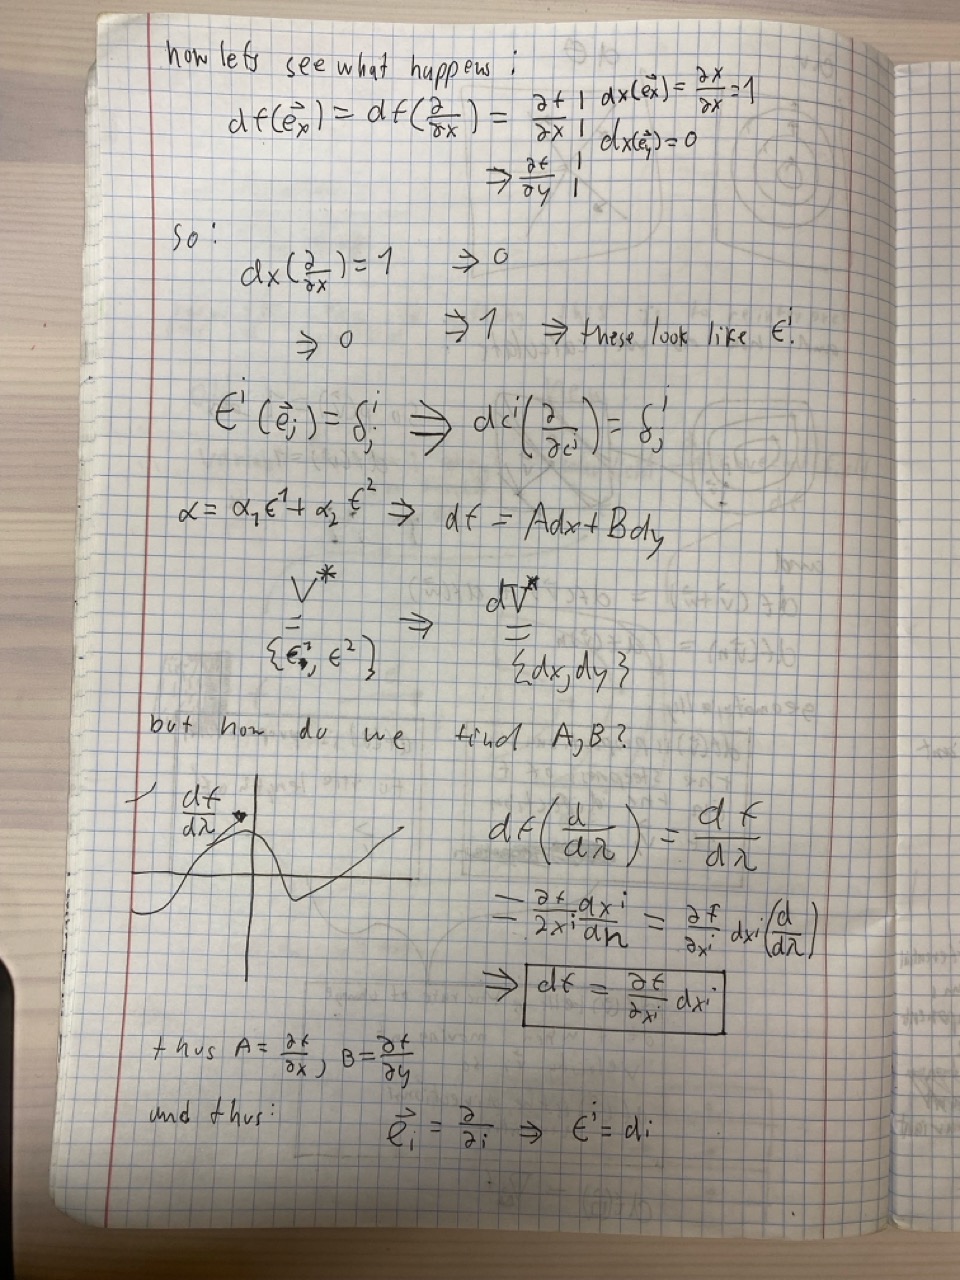 now lets see what happens:
df(e⃗x) = df(∂/∂x) = ∂f/∂x | dx(e⃗x) = ∂x/∂x = 1
⇒ ∂f/∂y | dx(e⃗y) = 0
so:
dx(∂/∂x) = 1 ⇒ 0
⇒ 0 ⇒ 1 ⇒ these look like ϵⁱ!
ϵⁱ(e⃗ⱼ) = δⁱⱼ ⟹ dcⁱ(∂/∂cʲ) = δⁱⱼ
α = α₁ϵ¹ + α₂ϵ² ⇒ df = Adx + Bdy
V* ⇒ dV*
= =
{ϵ¹, ϵ²} {dx, dy}
but how do we find A, B?
df/dλ
df(d/dλ) = df/dλ
= ∂f/∂xⁱ dxⁱ/dλ = ∂f/∂xⁱ dxⁱ(d/dλ)
⇒ df = ∂f/∂xⁱ dxⁱ
thus A = ∂f/∂x, B = ∂f/∂y
and thus: e⃗ᵢ = ∂/∂i ⇒ ϵⁱ = di